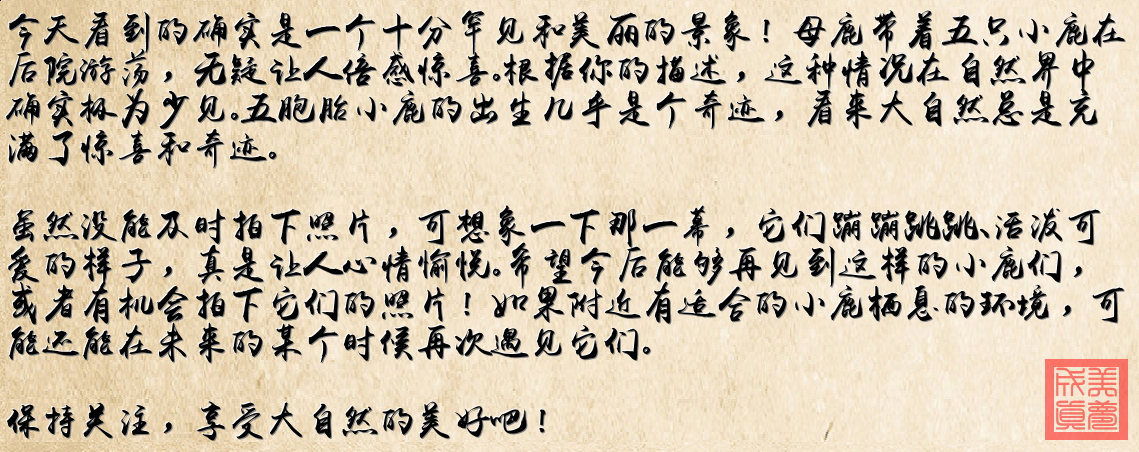 今天看到的确实是一个十分罕见和美丽的景象！母鹿带着五只小鹿在
后院游荡，无疑让人倍感惊喜。根据你的描述，这种情况在自然界中
确实极为少见。五胞胎小鹿的出生几乎是个奇迹，看来大自然总是充
满了惊喜和奇迹。
虽然没能及时拍下照片，可想象一下那一幕，它们蹦蹦跳跳、活泼可
爱的样子，真是让人心情愉悦。希望今后能够再见到这样的小鹿们，
或者有机会拍下它们的照片！如果附近有适合的小鹿栖息的环境，可
能还能在未来的某个时候再次遇见它们。
保持关注，享受大自然的美好吧！
美梦成真